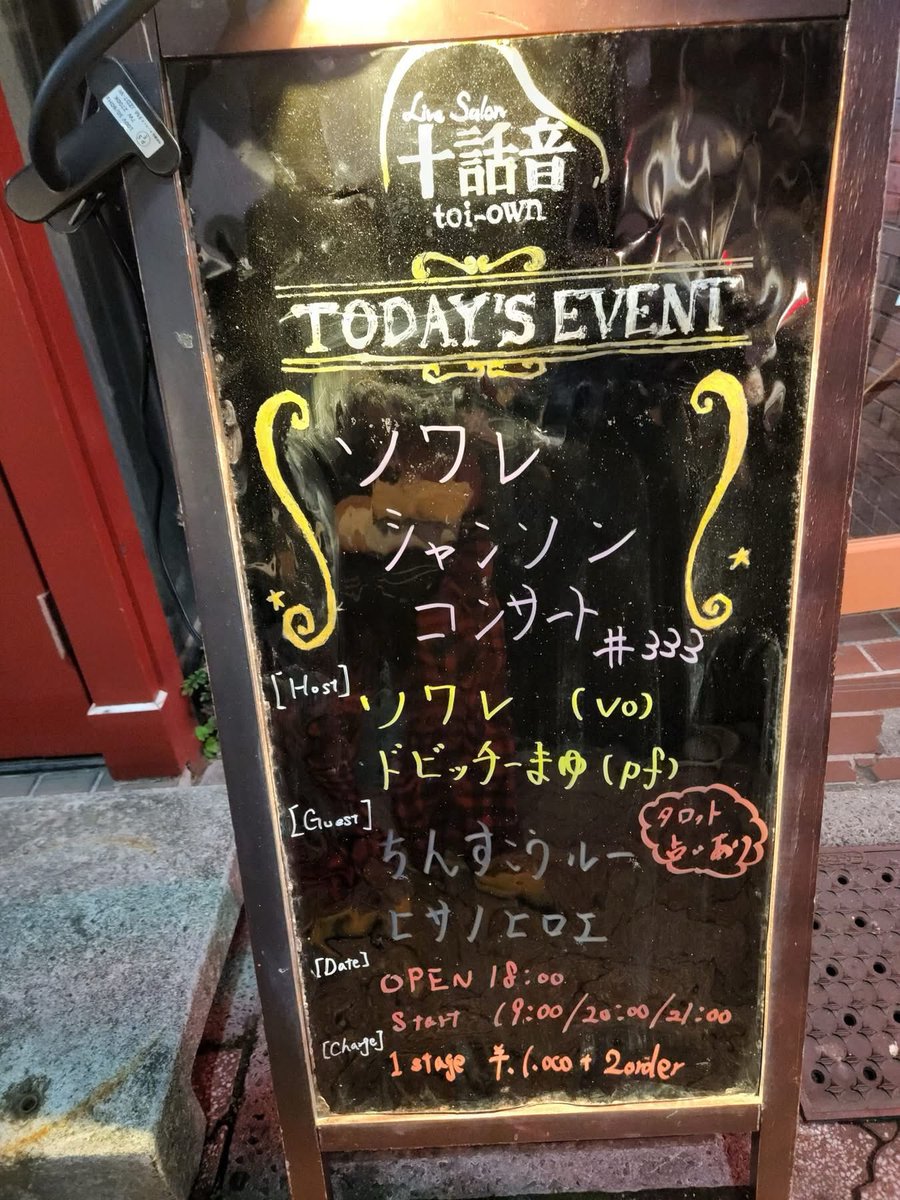 Live Salon
十話音
toi-own
TODAY'S EVENT
ソワレ
シャンソン
コンサート
#333
[Host]
ソワレ (vo)
ドビッチーまゆ(pf)
[Guest]
タロット
占いあり
ちんすこうルー
ヒサノヒロエ
[Date]
OPEN 18:00
Start 19:00/20:00/21:00
[Charge]
1 stage ¥.1.000+2order